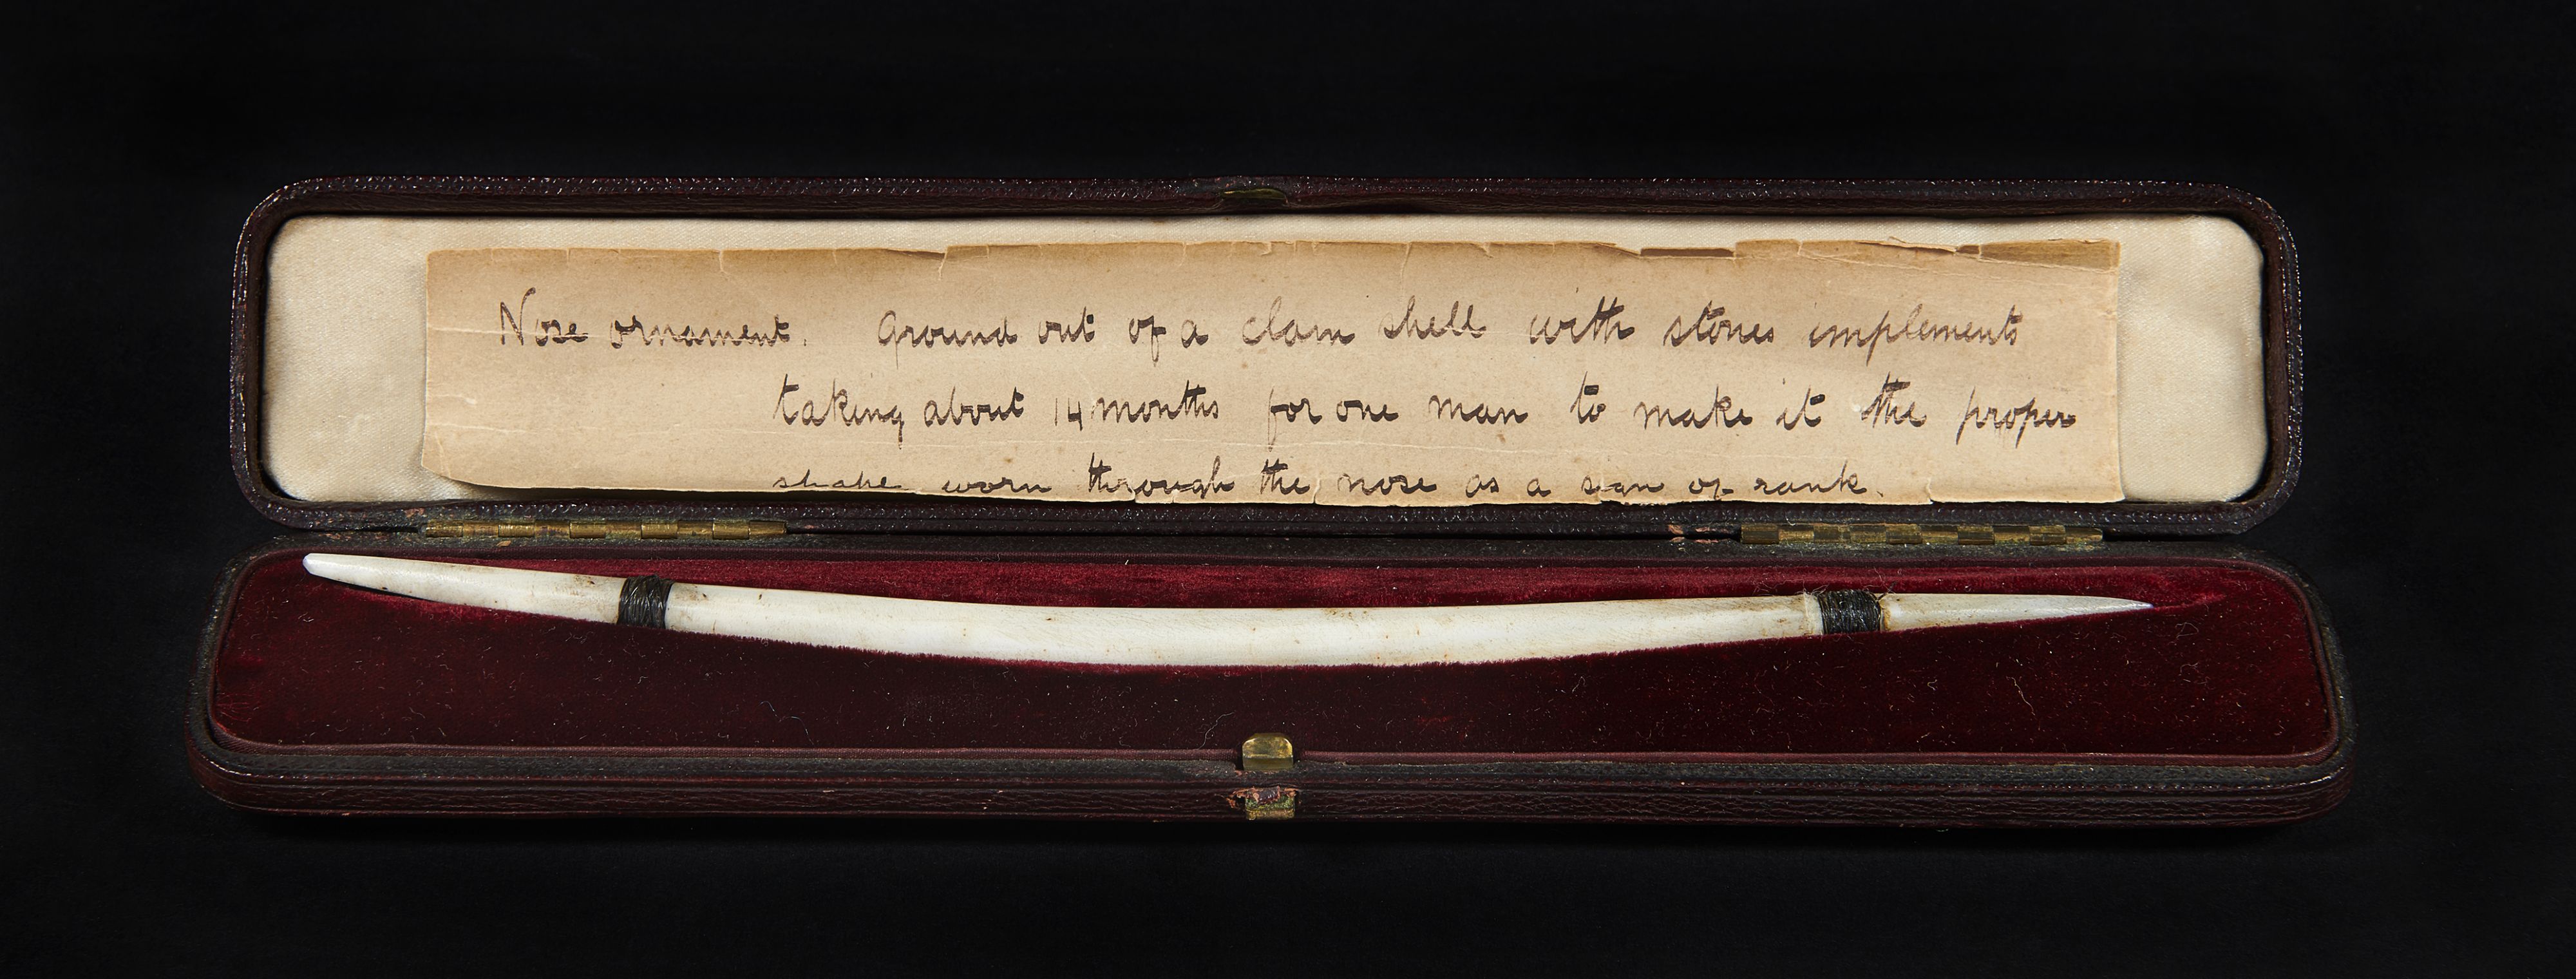 Nose ornament. Ground out of a clam shell with stones implements
taking about 14 months for one man to make it the proper
shape worn through the nose as a sign of rank.